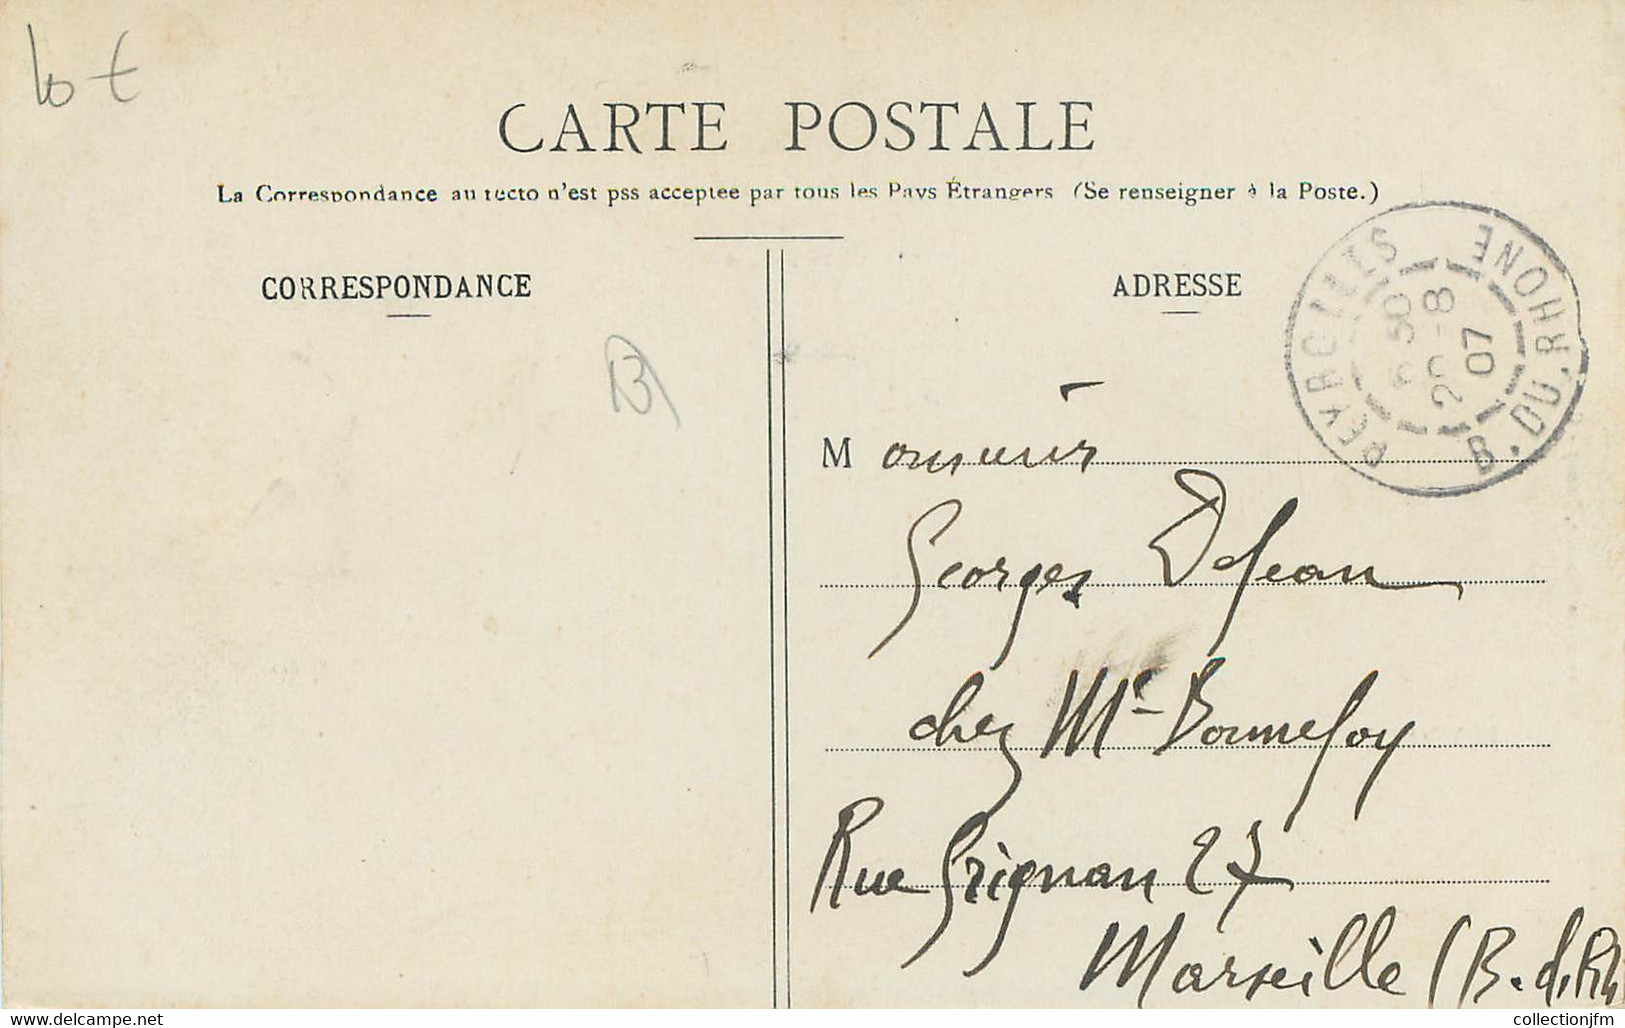 10 €
CARTE POSTALE
La Correspondance au recto n'est pss acceptee par tous les Pays Étrangers (Se renseigner à la Poste.)
CORRESPONDANCE
ADRESSE
PEYROLLES
B. DU. RHONE
50
20 - 8
07
13
Monsieur
Georges Dejean
chez Mr Bonnefoy
Rue Grignan 27
Marseille (B. d. Rh
www.delcampe.net
collectionjfm